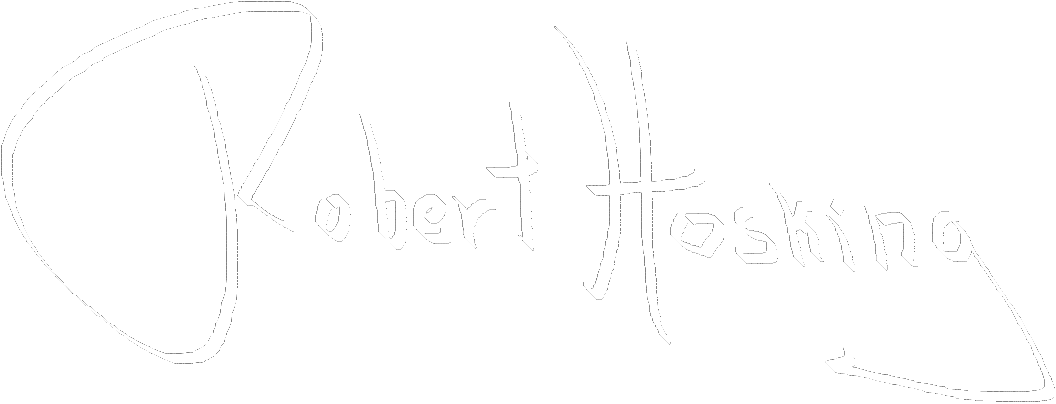 Robert Hosking